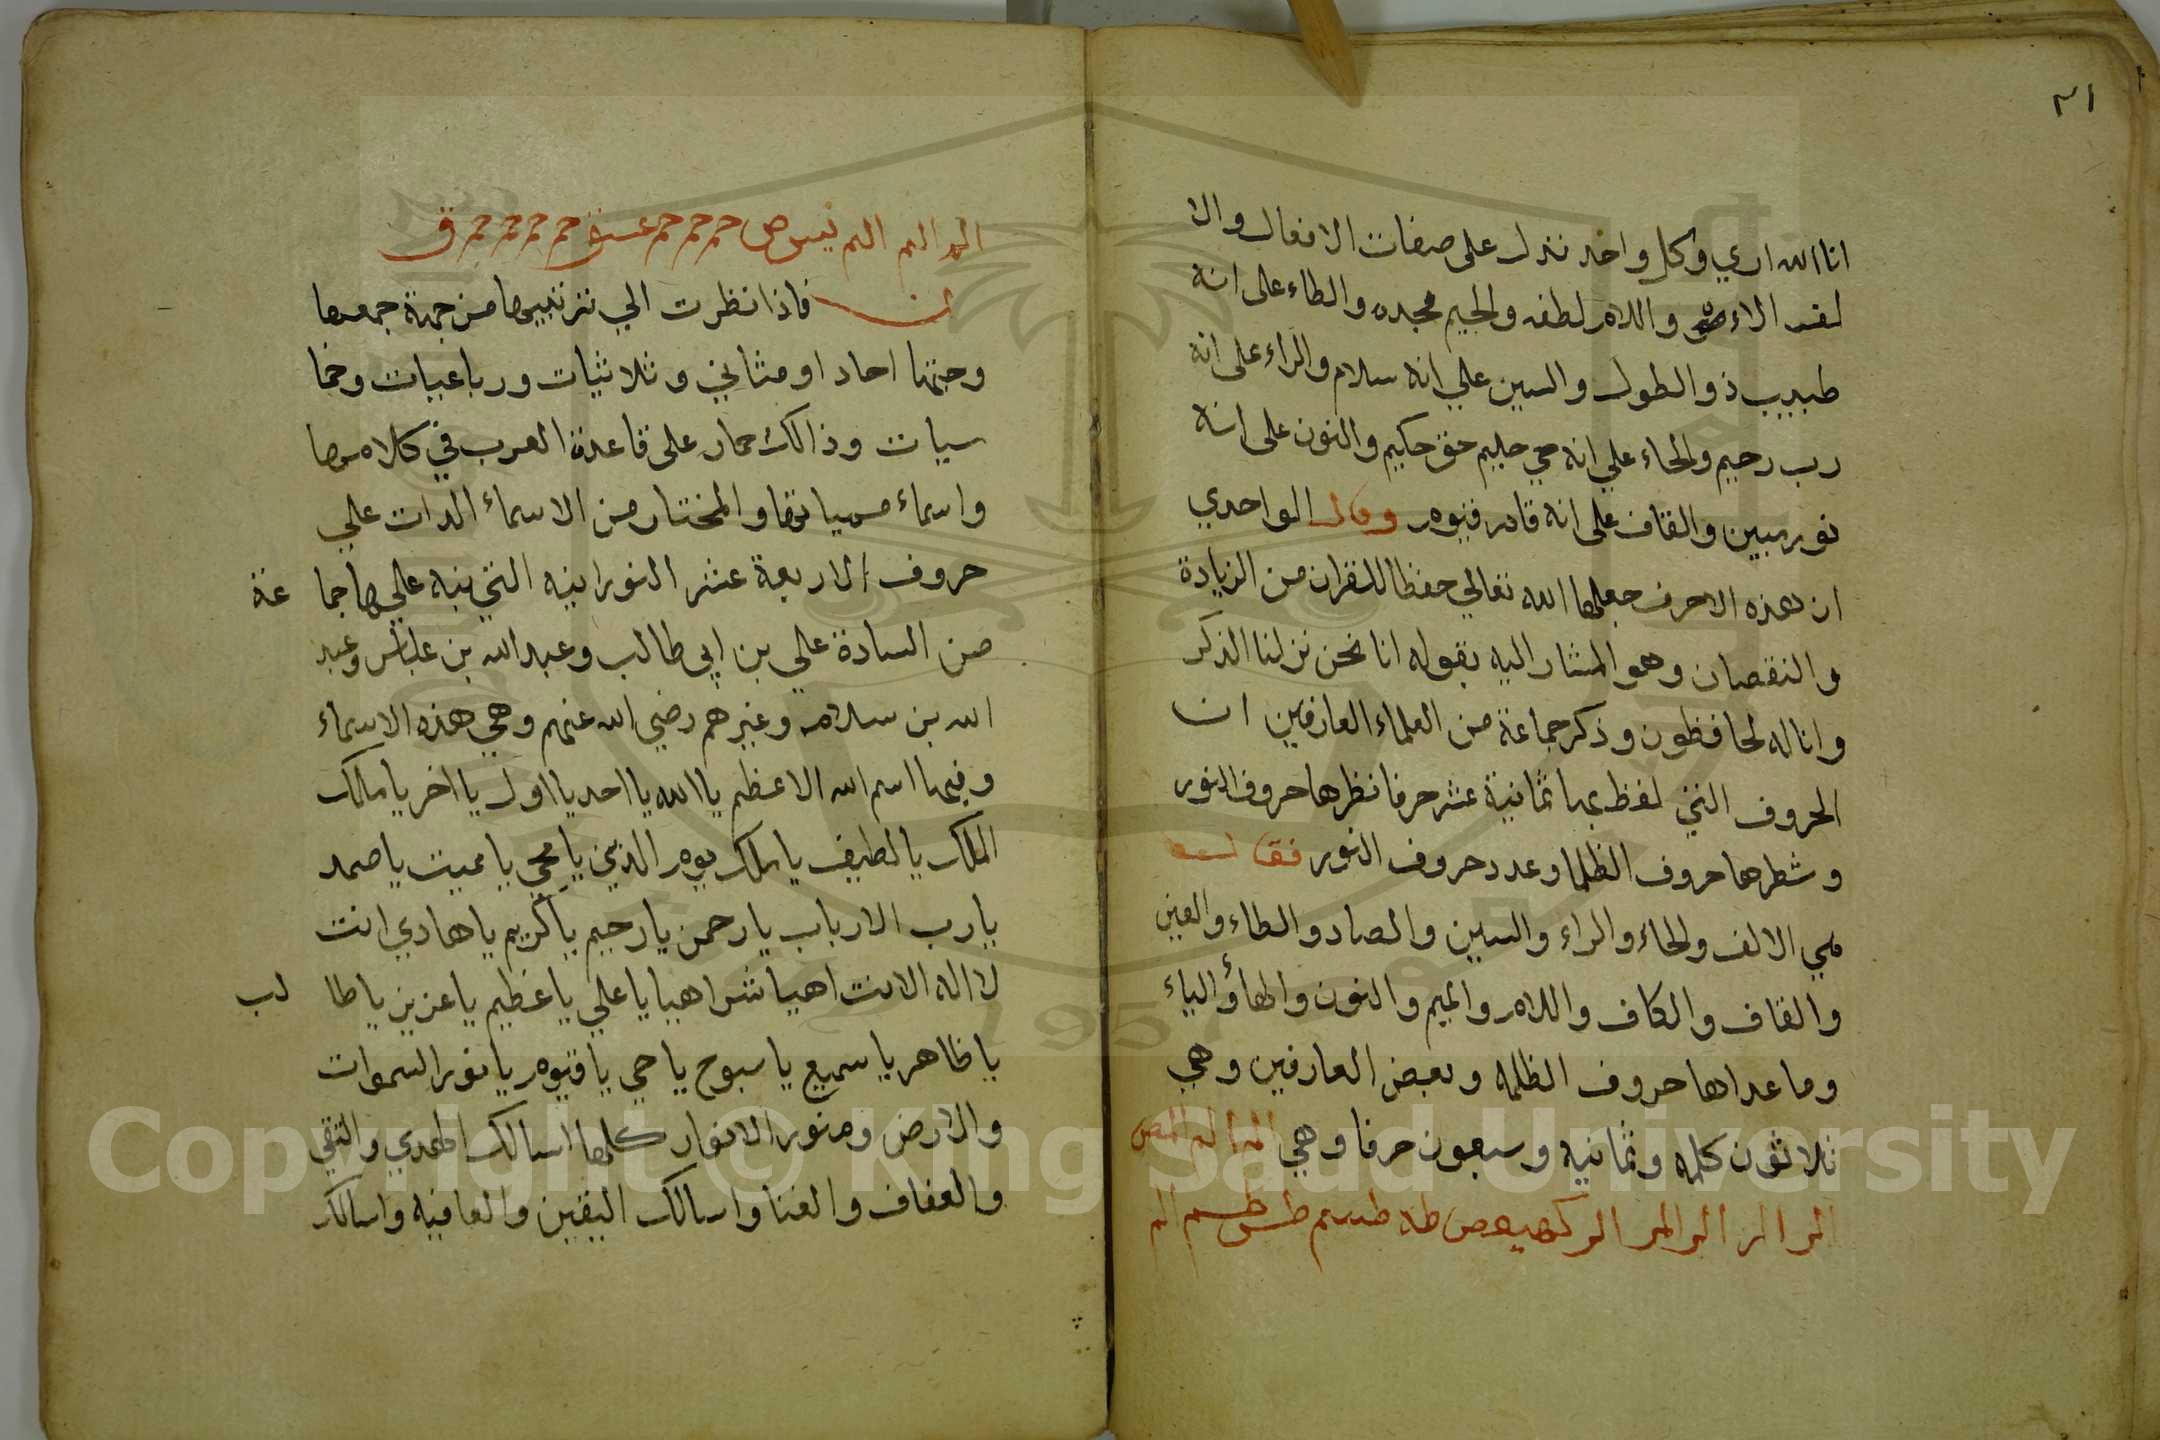 ٣١
انا الله اري وكل واحد تدل على صفات الافعال والا
لف الاءه واللام لطفه والجيم مجده والطاء على انه
طبيب ذو الطول والسين علي انه سلام والراء على انه
رب رحيم والحاء علي انه حي حليم حق حكيم والنون على انه
نور مبين والقاف على انه قادر قيوم وقال الواحدي
ان هذه الاحرف جعلها الله تعالي حفظا للقران من الزيادة
والنقصان وهو المشار اليه بقوله انا نحن نزلنا الذكر
وانا له لحافظون وذكر جماعة من العلماء العارفين ان
الحروف التي لفظ بها ثمانية عشر حرفا نظرها حروف النور
وشطرها حروف الظلما وعدد حروف النور فقال
هي الالف والحاء والراء والسين والصاد والطاء والعين
والقاف والكاف واللام والميم والنون والهاء والياء
وما عداها حروف الظلمه وبعض العارفين وهي
ثلاثون كلمه وثمانيه وسبعون حرفا وهي الم الم المص
الر الر الر المر الر كهيعص طه طسم طس طسم الم
الم الم الم يس ص حم حم حم عسق حم حم حم حم ق
ن فاذا نظرت الي ترتيبها من جهة جمعها
وجيتها احاد او مثاني وثلاثيات ورباعيات وخما
سيات وذالك جار على قاعدة العرب في كلامها
واسماء مسياتها والمختار من الاسماء الدات علي
حروف الاربعة عشر النورانيه التي نبه عليها جما عة
من السادة علي بن ابي طالب وعبد الله بن عباس وعبد
الله بن سلام وغيرهم رضي الله عنهم وهي هذه الاسماء
وفيها اسم الله الاعظم يا الله يا احد يا اول يا اخر يا مالك
الملك يا لطيف يا ملك يوم الدين يا محي يا مميت يا صمد
يا رب الارباب يا رحمن يا رحيم يا كريم يا هادي انت
لا اله الا انت اهيا شراهيا يا علي يا عظيم يا عزيز يا طا لب
يا ظاهر يا سميع يا سبوح يا حي يا قيوم يا نور السموات
والارض ومنور الانوار كلها اسالك الهدي والتقي
والعفاف والغنا واسالك اليقين والعافيه واسالك
Copyright © King Saud University